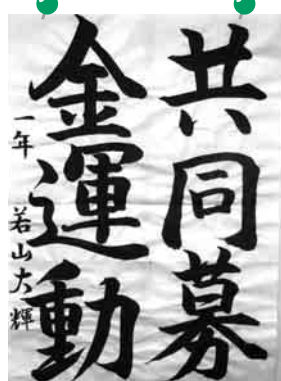 共同募
金運動
一年 若山大輝